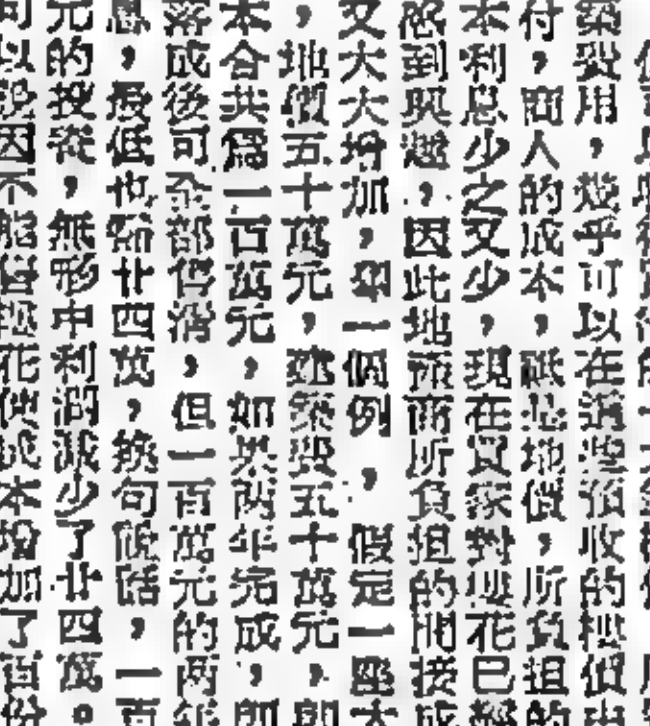 築費用，幾乎可以在這些預收的樓價
付，商人的成本，祗是地價，所負担的
本利息少之又少，現在買家對樓花已經
感到興趣，因此地產商所負担的間接成
又大大增加，舉一個例，假定一座大
，地價五十萬元，建築費五十萬元，即
本合共爲一百萬元，如果两年完成，即
落成後可全部售清，但一百萬元的两年
息，最低也需廿四萬，換句說話，一百
元的投資，無形中利潤減少了廿四萬。
可以說因不能售樓花使成本增加了百份